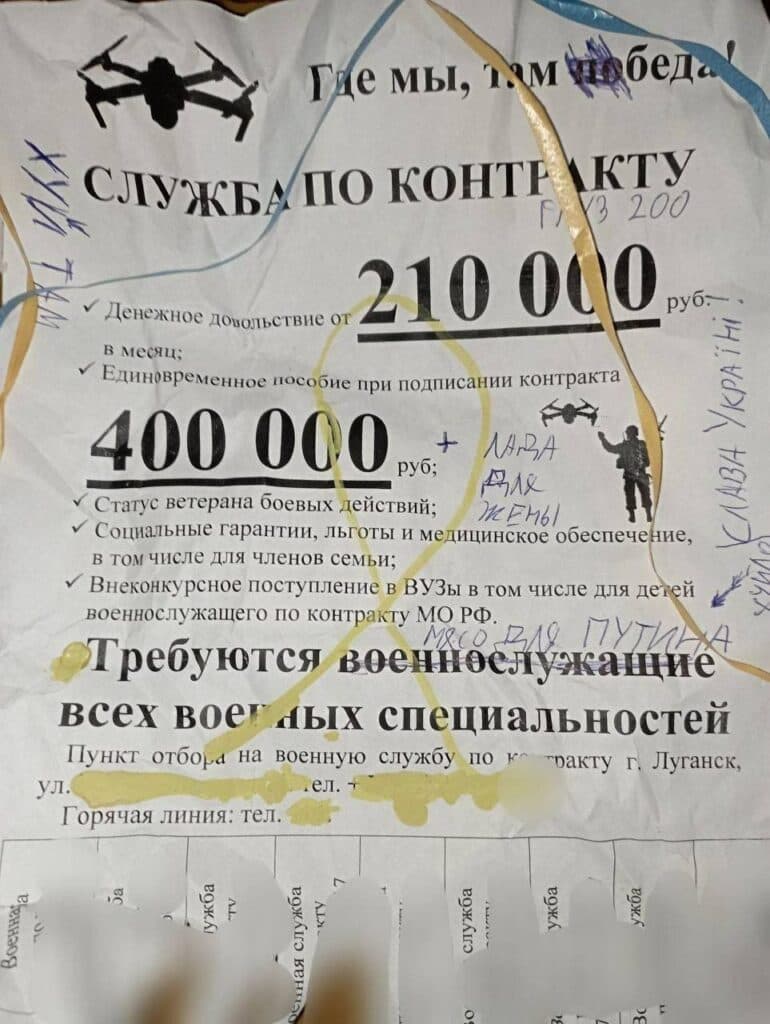 Где мы, там победа!
СЛУЖБА ПО КОНТРАКТУ
ХУЙ ТАМ
ГРУЗ 200
Денежное довольствие от 210 000 руб.
в месяц;
Единовременное пособие при подписании контракта
400 000 руб;
+ ЛАДА
ДЛЯ
ЖЕНЫ
СЛАВА УКРАЇНІ!
ХУЙЛО
Статус ветерана боевых действий;
Социальные гарантии, льготы и медицинское обеспечение,
в том числе для членов семьи;
Внеконкурсное поступление в ВУЗы в том числе для детей
военнослужащего по контракту МО РФ.
МЯСО ДЛЯ ПУТИНА
Требуются военнослужащие
всех военных специальностей
Пункт отбора на военную службу по контракту г. Луганск,
ул.
Горячая линия: тел.
служба
служба